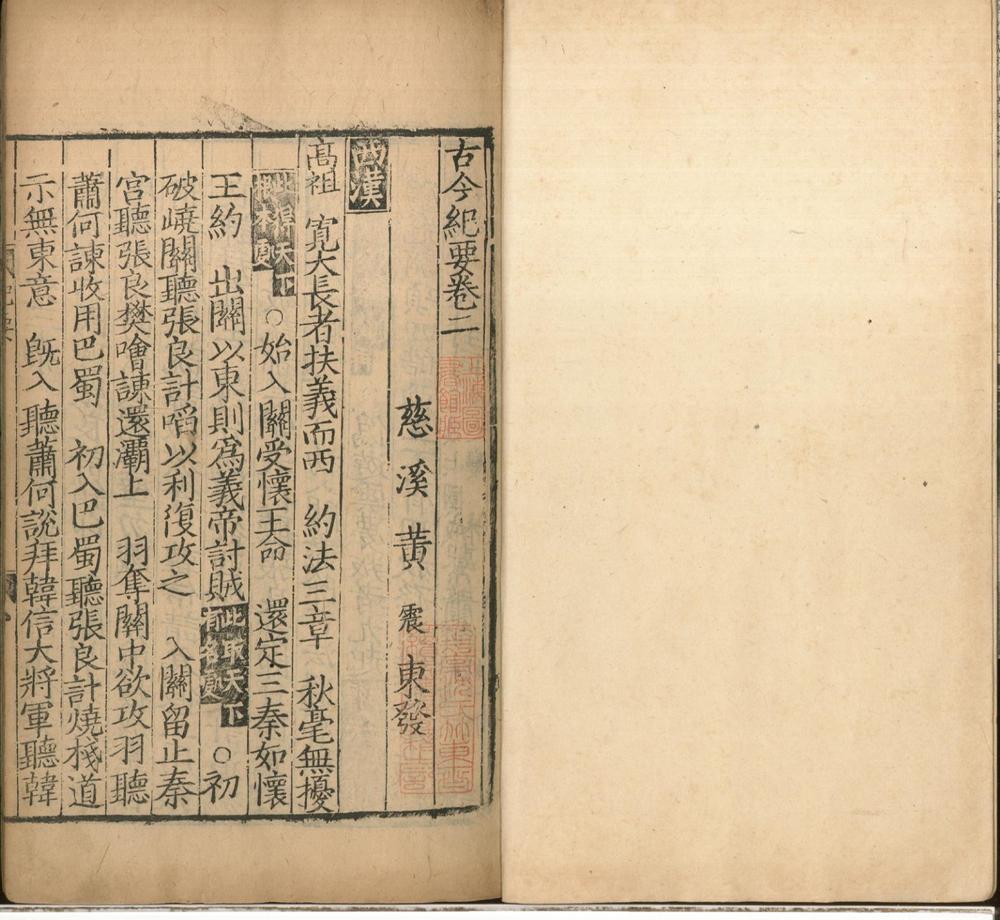 古今紀要卷二
慈溪黄震東發
西漢
高祖 寬大長者扶義而西 約法三章 秋毫無擾
此得天下根本處 ○始入關受懷王命 還定三秦如懷
王約 出關以東則爲義帝討賊 此取天下有名處 ○初
破嶢關聽張良計啗以利復攻之 入關留止秦
宫聽張良樊噲諫還灞上 羽奪關中欲攻羽聽
蕭何諫收用巴蜀 初入巴蜀聽張良計燒棧道
示無東意 旣入聽蕭何說拜韓信大將軍聽韓